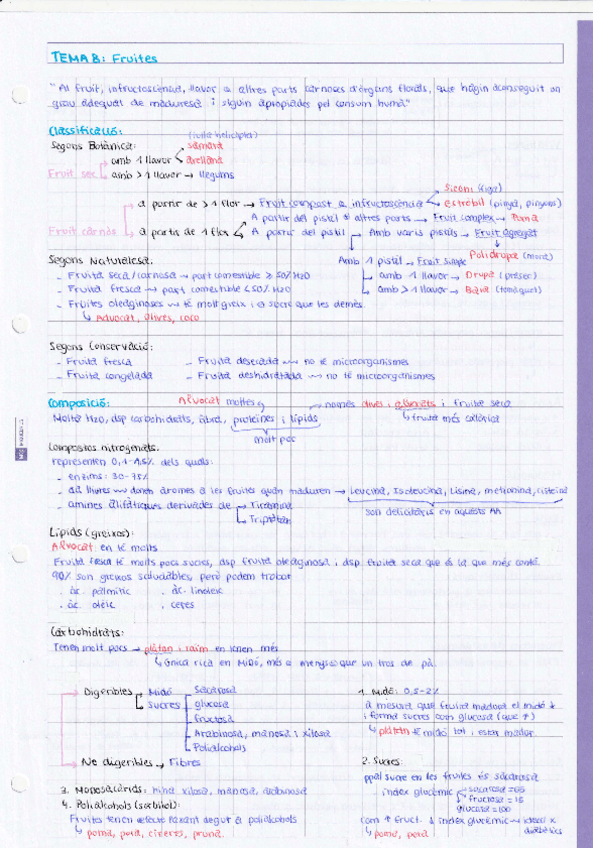 TEMA 8: Fruites
"Al fruit, infructescència, llavor o altres parts carnoses d'òrgans florals, que hagin aconseguit un
grau adequat de maduresa i siguin apropiades pel consum humà"
Classificació:
Segons Botànica:
samara
Fruit sec
amb 1 llavor
avellana
amb >1 llavor → llegums
Fruit carnós
a partir de >1 flor → Fruit compost o infructescència
Siconi (figa)
estròbil (pinya, pinyons)
a partir de 1 flor
A partir del pistil + altres parts → Fruit complex → Poma
A partir del pistil
Amb varis pistils → Fruit agregat
Polidrupa (mora)
Amb 1 pistil → Fruit simple
amb 1 llavor → Drupa (préser)
amb >1 llavor → Baia (tomàquet)
Segons Naturalesa:
- Fruita seca/carnosa → part comestible ≥ 50% H2O
- Fruita fresca → part comestible <50% H2O
- Fruites oleaginoses → té molt greix i ⊖ sucre que les demés.
Advocat, olives, coco
Segons Conservació:
- Fruita fresca
- Fruita desecada → no té microorganismes
- Fruita congelada
- Fruita deshidratada → no té microorganismes
Composició:
Alvocat moltes
només olives i alvocats i fruita seca
Molta H2O, dsp carbohidrats, fibra, proteïnes i lípids
fruita més calòrica
molt poc
Compostos nitrogenats:
representen 0,1-1,5% dels quals:
- enzims: 30-75%
- aa lliures → donen aromes a les fruites quan maduren → Leucina, Isoleucina, Lisina, metionina, cisteïna
son deficitaris en aquests AA
- amines alifàtiques derivades de
Tiramina
Triptòfan
Lípids (greixos):
Alvocat en té molts
Fruita fresca té molts pocs sucres, dsp fruita oleaginosa i dsp fruita seca que és la que més conté.
90% son greixos saludables, però podem trobar
. àc. palmític
. àc. linoleic
. àc. oleic
. ceres
Carbohidrats:
Tenen molt pocs → plàtan i raïm en tenen més
única rica en Midó, més o menys que un tros de pa.
Digeribles
Midó
sucres
Sacarosa
glucosa
fructosa
Arabinosa, manosa i xilosa
Polialcohols
No digeribles → Fibres
1. Midó: 0,5-2%
a mesura que fruita madura el midó ↓
i forma sucres com glucosa (que ↑)
plàtan té midó tot i estar madur.
2. Sucres:
ppal sucre en les fruites és sacarosa
índex glucèmic
sacarosa = 65
fructosa = 15
glucosa = 100
com ↑ fruct. ↓ índex glucèmic → ideal x diabètics
poma, pera
3. Monosacàrids: hi ha xilosa, manosa, arabinosa
4. Polialcohols (sorbitol):
Fruites tenen efecte laxant degut a polialcohols
poma, pera, cireres, pruna.